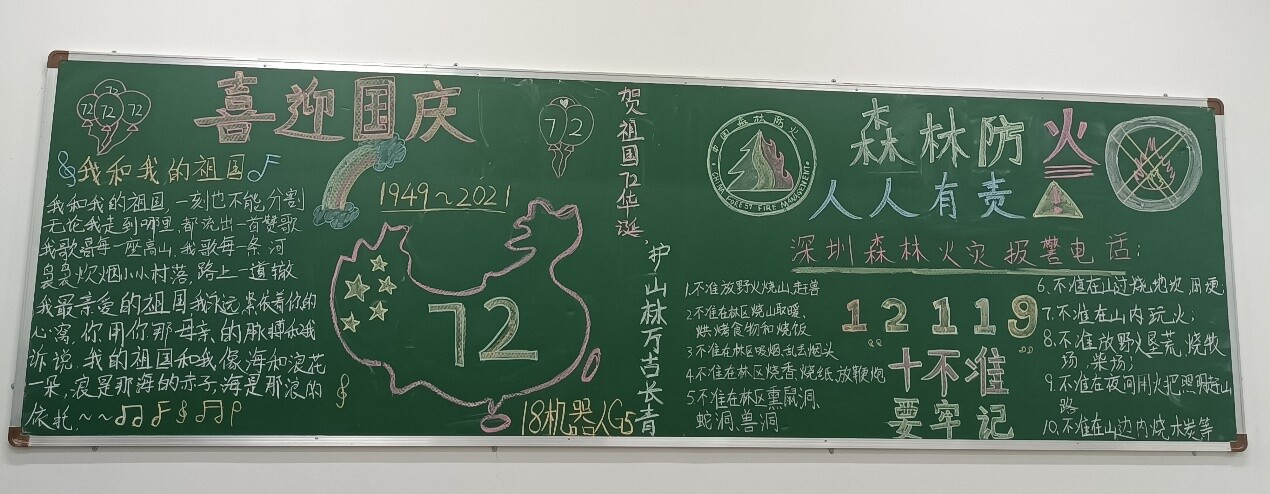 72
72 72 72
喜迎国庆
72
我和我的祖国
我和我的祖国,一刻也不能分割
无论我走到哪里,都流出一首赞歌
我歌唱每一座高山,我歌每一条河
袅袅炊烟小小村落,路上一道辙
我最亲爱的祖国我永远紧依着你的
心窝,你用你那母亲的脉搏和我
诉说.我的祖国和我像海和浪花
一朵,浪是那海的赤子,海是那浪的
依托,~~
1949~2021
72
18机器人G5
贺祖国72华诞
护山林万古长青
中国森林防火
CHINA FOREST FIRE MANAGEMENT
森林防火
人人有责
!
深圳森林火灾报警电话:
12119
“十不准”
要牢记
1.不准放野火烧山,赶兽
2不准在林区烧山取暖、
烘烤食物和烧饭
3不准在林区吸烟,乱丢烟头
4.不准在林区烧香,烧纸,放鞭炮
5不准在林区熏鼠洞、
蛇洞、兽洞
6.不准在山过烧地坎、田埂;
7.不准在山内玩火;
8.不准放野火垦荒,烧牧
场,柴场;
9.不准在夜间用火把照明赶山
路
10.不准在山边内烧木炭等